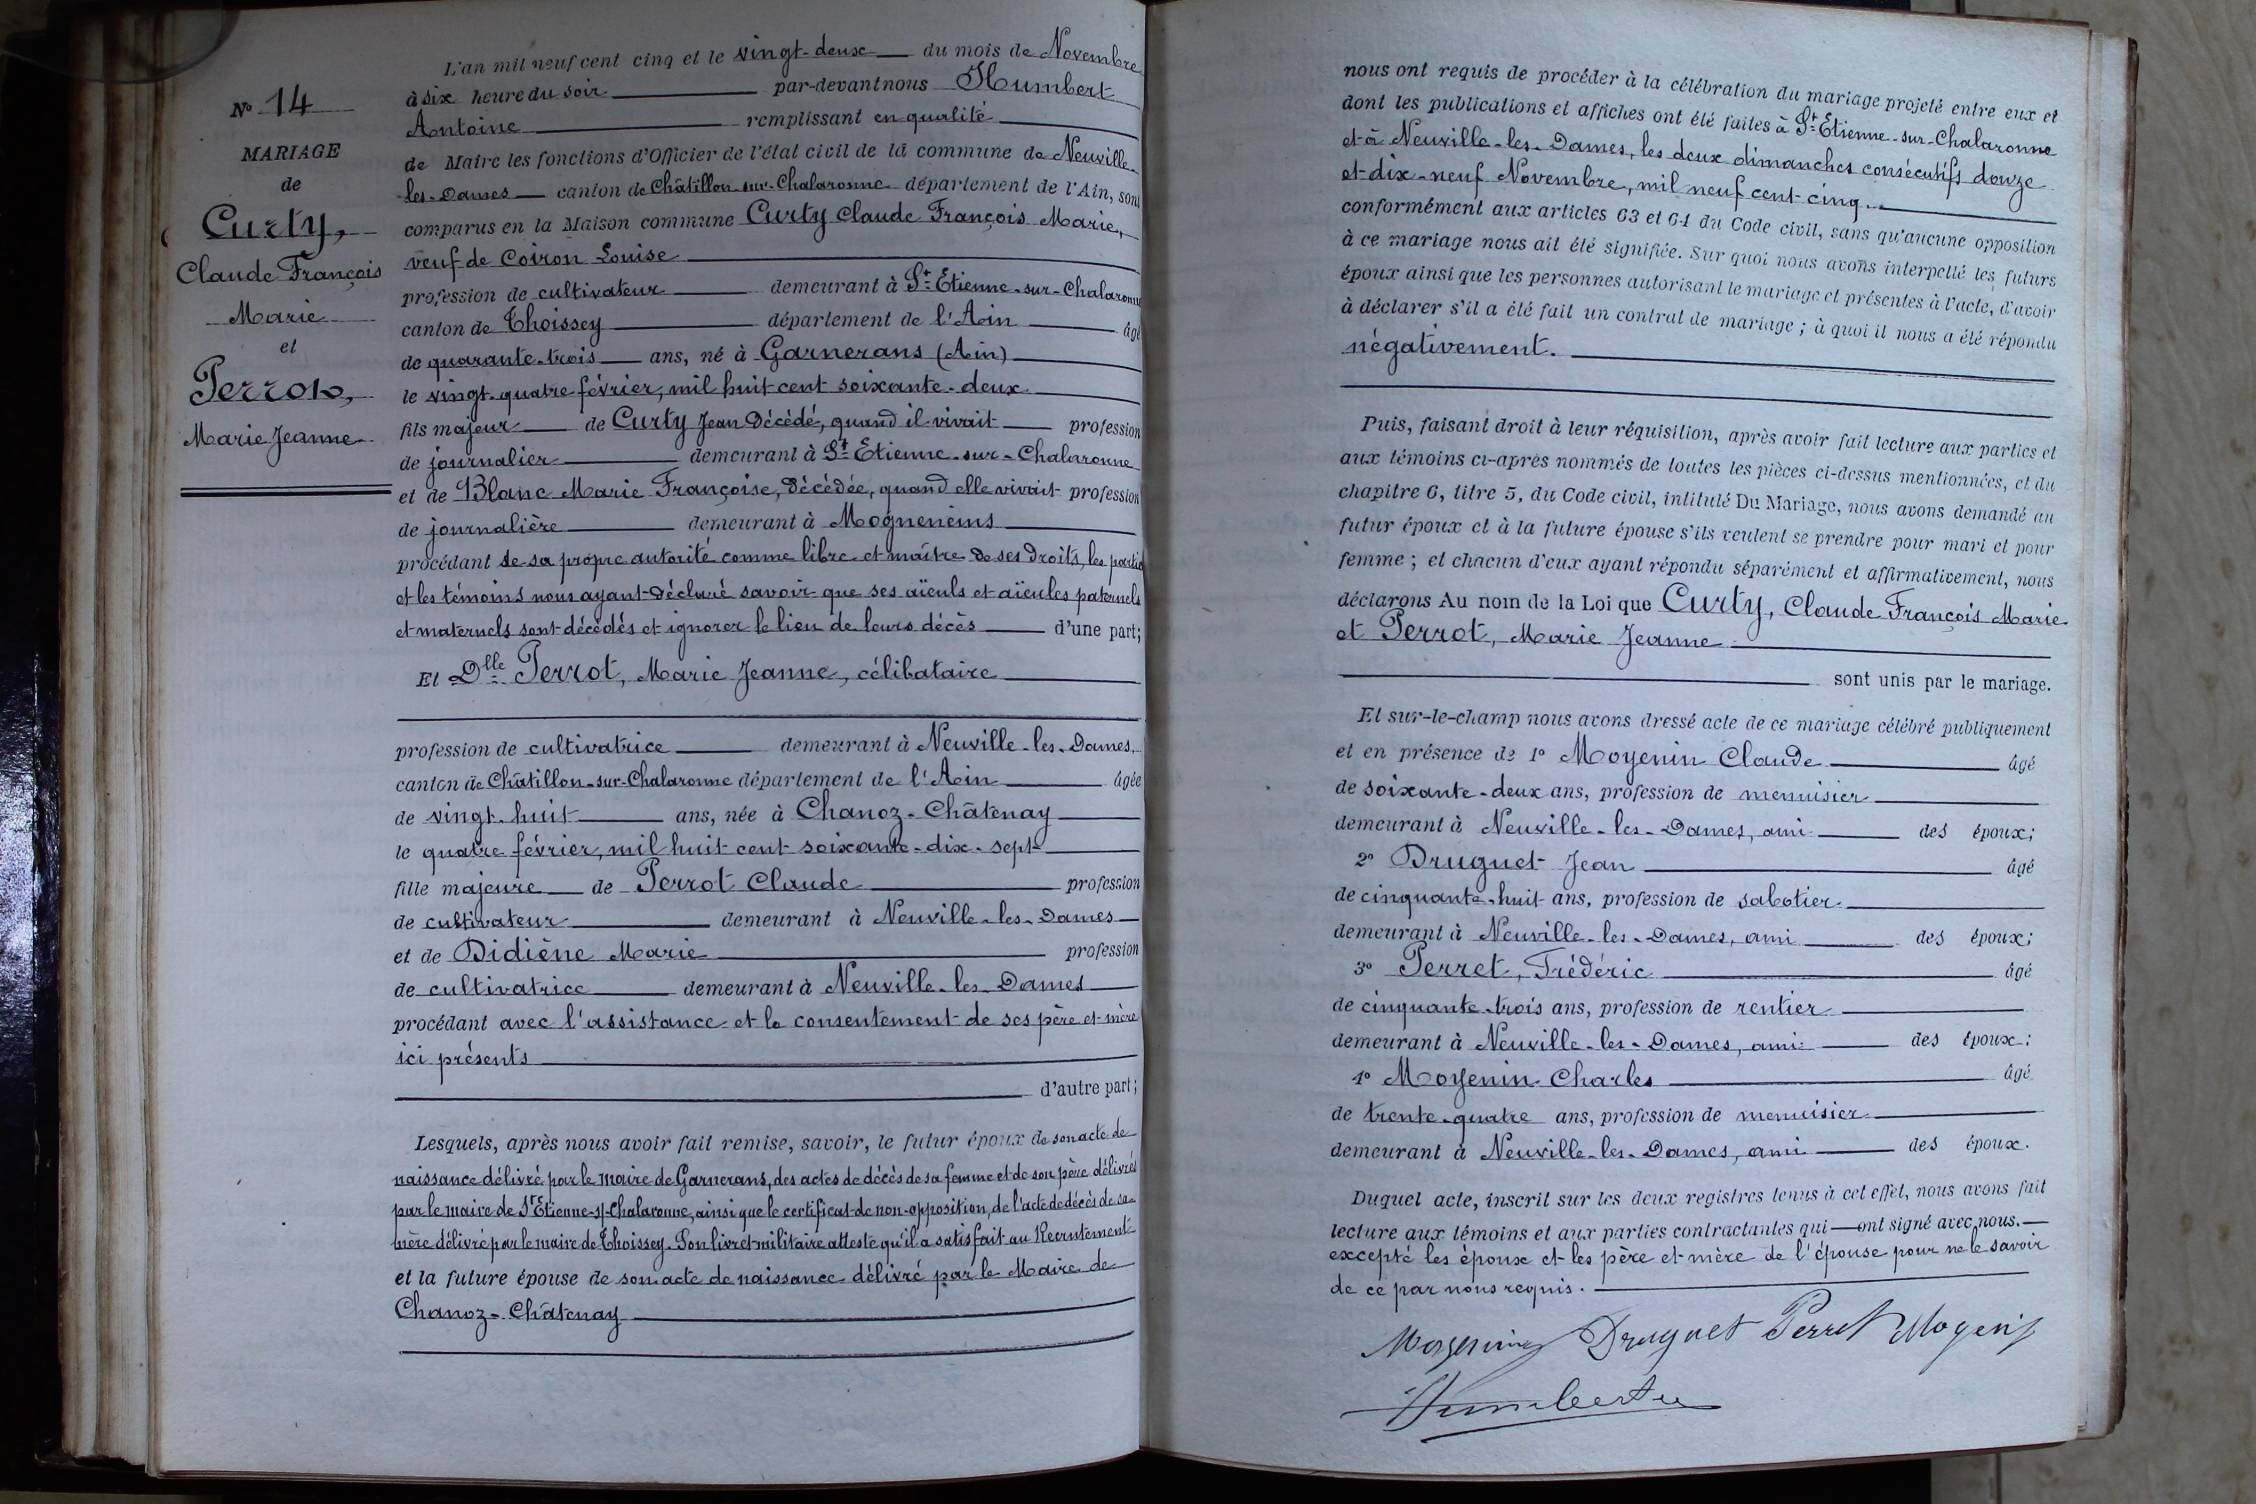 N° 14
MARIAGE
de
Curty,
Claude François
Marie
et
Perrot,
Marie Jeanne
L'an mil neuf cent cinq et le vingt-deux du mois de Novembre
à six heure du soir par-devant nous Humbert
Antoine remplissant en qualité
de Maire les fonctions d'Officier de l'état civil de la commune de Neuville-
les-Dames canton de Châtillon-sur-Chalaronne département de l'Ain, sont
comparus en la Maison commune Curty Claude François Marie,
veuf de Coiron Louise
profession de cultivateur demeurant à St Etienne-sur-Chalaronne
canton de Thoissey département de l'Ain âgé
de quarante-trois ans, né à Garnerans (Ain)
le vingt-quatre février, mil huit cent soixante-deux
fils majeur de Curty Jean décédé, quand il vivait profession
de journalier demeurant à St Etienne-sur-Chalaronne
et de Blanc Marie Françoise, décédée, quand elle vivait profession
de journalière demeurant à Mogneneins
procédant de sa propre autorité comme libre et maître de ses droits, les parties
et les témoins nous ayant déclaré savoir que ses aïeuls et aïeules paternels
et maternels sont décédés et ignorer le lieu de leurs décès d'une part;
Et Dlle Perrot, Marie Jeanne, célibataire
profession de cultivatrice demeurant à Neuville-les-Dames,
canton de Châtillon-sur-Chalaronne département de l'Ain âgée
de vingt-huit ans, née à Chanoz-Châtenay
le quatre février, mil huit cent soixante-dix-sept
fille majeure de Perrot Claude profession
de cultivateur demeurant à Neuville-les-Dames
et de Didiène Marie profession
de cultivatrice demeurant à Neuville-les-Dames
procédant avec l'assistance et le consentement de ses père et mère
ici présents
d'autre part;
Lesquels, après nous avoir fait remise, savoir, le futur époux de son acte de
naissance délivré par le maire de Garnerans, des actes de décès de sa femme et de son père délivrés
par le maire de St Etienne-s/-Chalaronne, ainsi que le certificat de non-opposition, de l'acte de décès de sa
mère délivré par le maire de Thoissey. Son livret militaire atteste qu'il a satisfait au Recrutement
et la future épouse de son acte de naissance délivré par le Maire de
Chanoz-Châtenay
nous ont requis de procéder à la célébration du mariage projeté entre eux et
dont les publications et affiches ont été faites à St Etienne-sur-Chalaronne
et à Neuville-les-Dames, les deux dimanches consécutifs douze
et dix-neuf Novembre, mil neuf cent cinq.
conformément aux articles 63 et 64 du Code civil, sans qu'aucune opposition
à ce mariage nous ait été signifiée. Sur quoi nous avons interpellé les futurs
époux ainsi que les personnes autorisant le mariage et présentes à l'acte, d'avoir
à déclarer s'il a été fait un contrat de mariage; à quoi il nous a été répondu
négativement.
Puis, faisant droit à leur réquisition, après avoir fait lecture aux parties et
aux témoins ci-après nommés de toutes les pièces ci-dessus mentionnées, et du
chapitre 6, titre 5, du Code civil, intitulé Du Mariage, nous avons demandé au
futur époux et à la future épouse s'ils veulent se prendre pour mari et pour
femme; et chacun d'eux ayant répondu séparément et affirmativement, nous
déclarons Au nom de la Loi que Curty, Claude François Marie
et Perrot, Marie Jeanne
sont unis par le mariage.
Et sur-le-champ nous avons dressé acte de ce mariage célébré publiquement
et en présence de 1° Moyenin Claude âgé
de soixante-deux ans, profession de menuisier
demeurant à Neuville-les-Dames, ami des époux;
2° Druguet Jean âgé
de cinquante-huit ans, profession de sabotier
demeurant à Neuville-les-Dames, ami des époux;
3° Perret, Frédéric âgé
de cinquante-trois ans, profession de rentier
demeurant à Neuville-les-Dames, ami des époux;
4° Moyenin Charles âgé
de trente-quatre ans, profession de menuisier
demeurant à Neuville-les-Dames, ami des époux.
Duquel acte, inscrit sur les deux registres tenus à cet effet, nous avons fait
lecture aux témoins et aux parties contractantes qui ont signé avec nous.
excepté les époux et les père et mère de l'épouse pour ne le savoir
de ce par nous requis.
Moyenin Druguet Perret Moyenin
Humbert